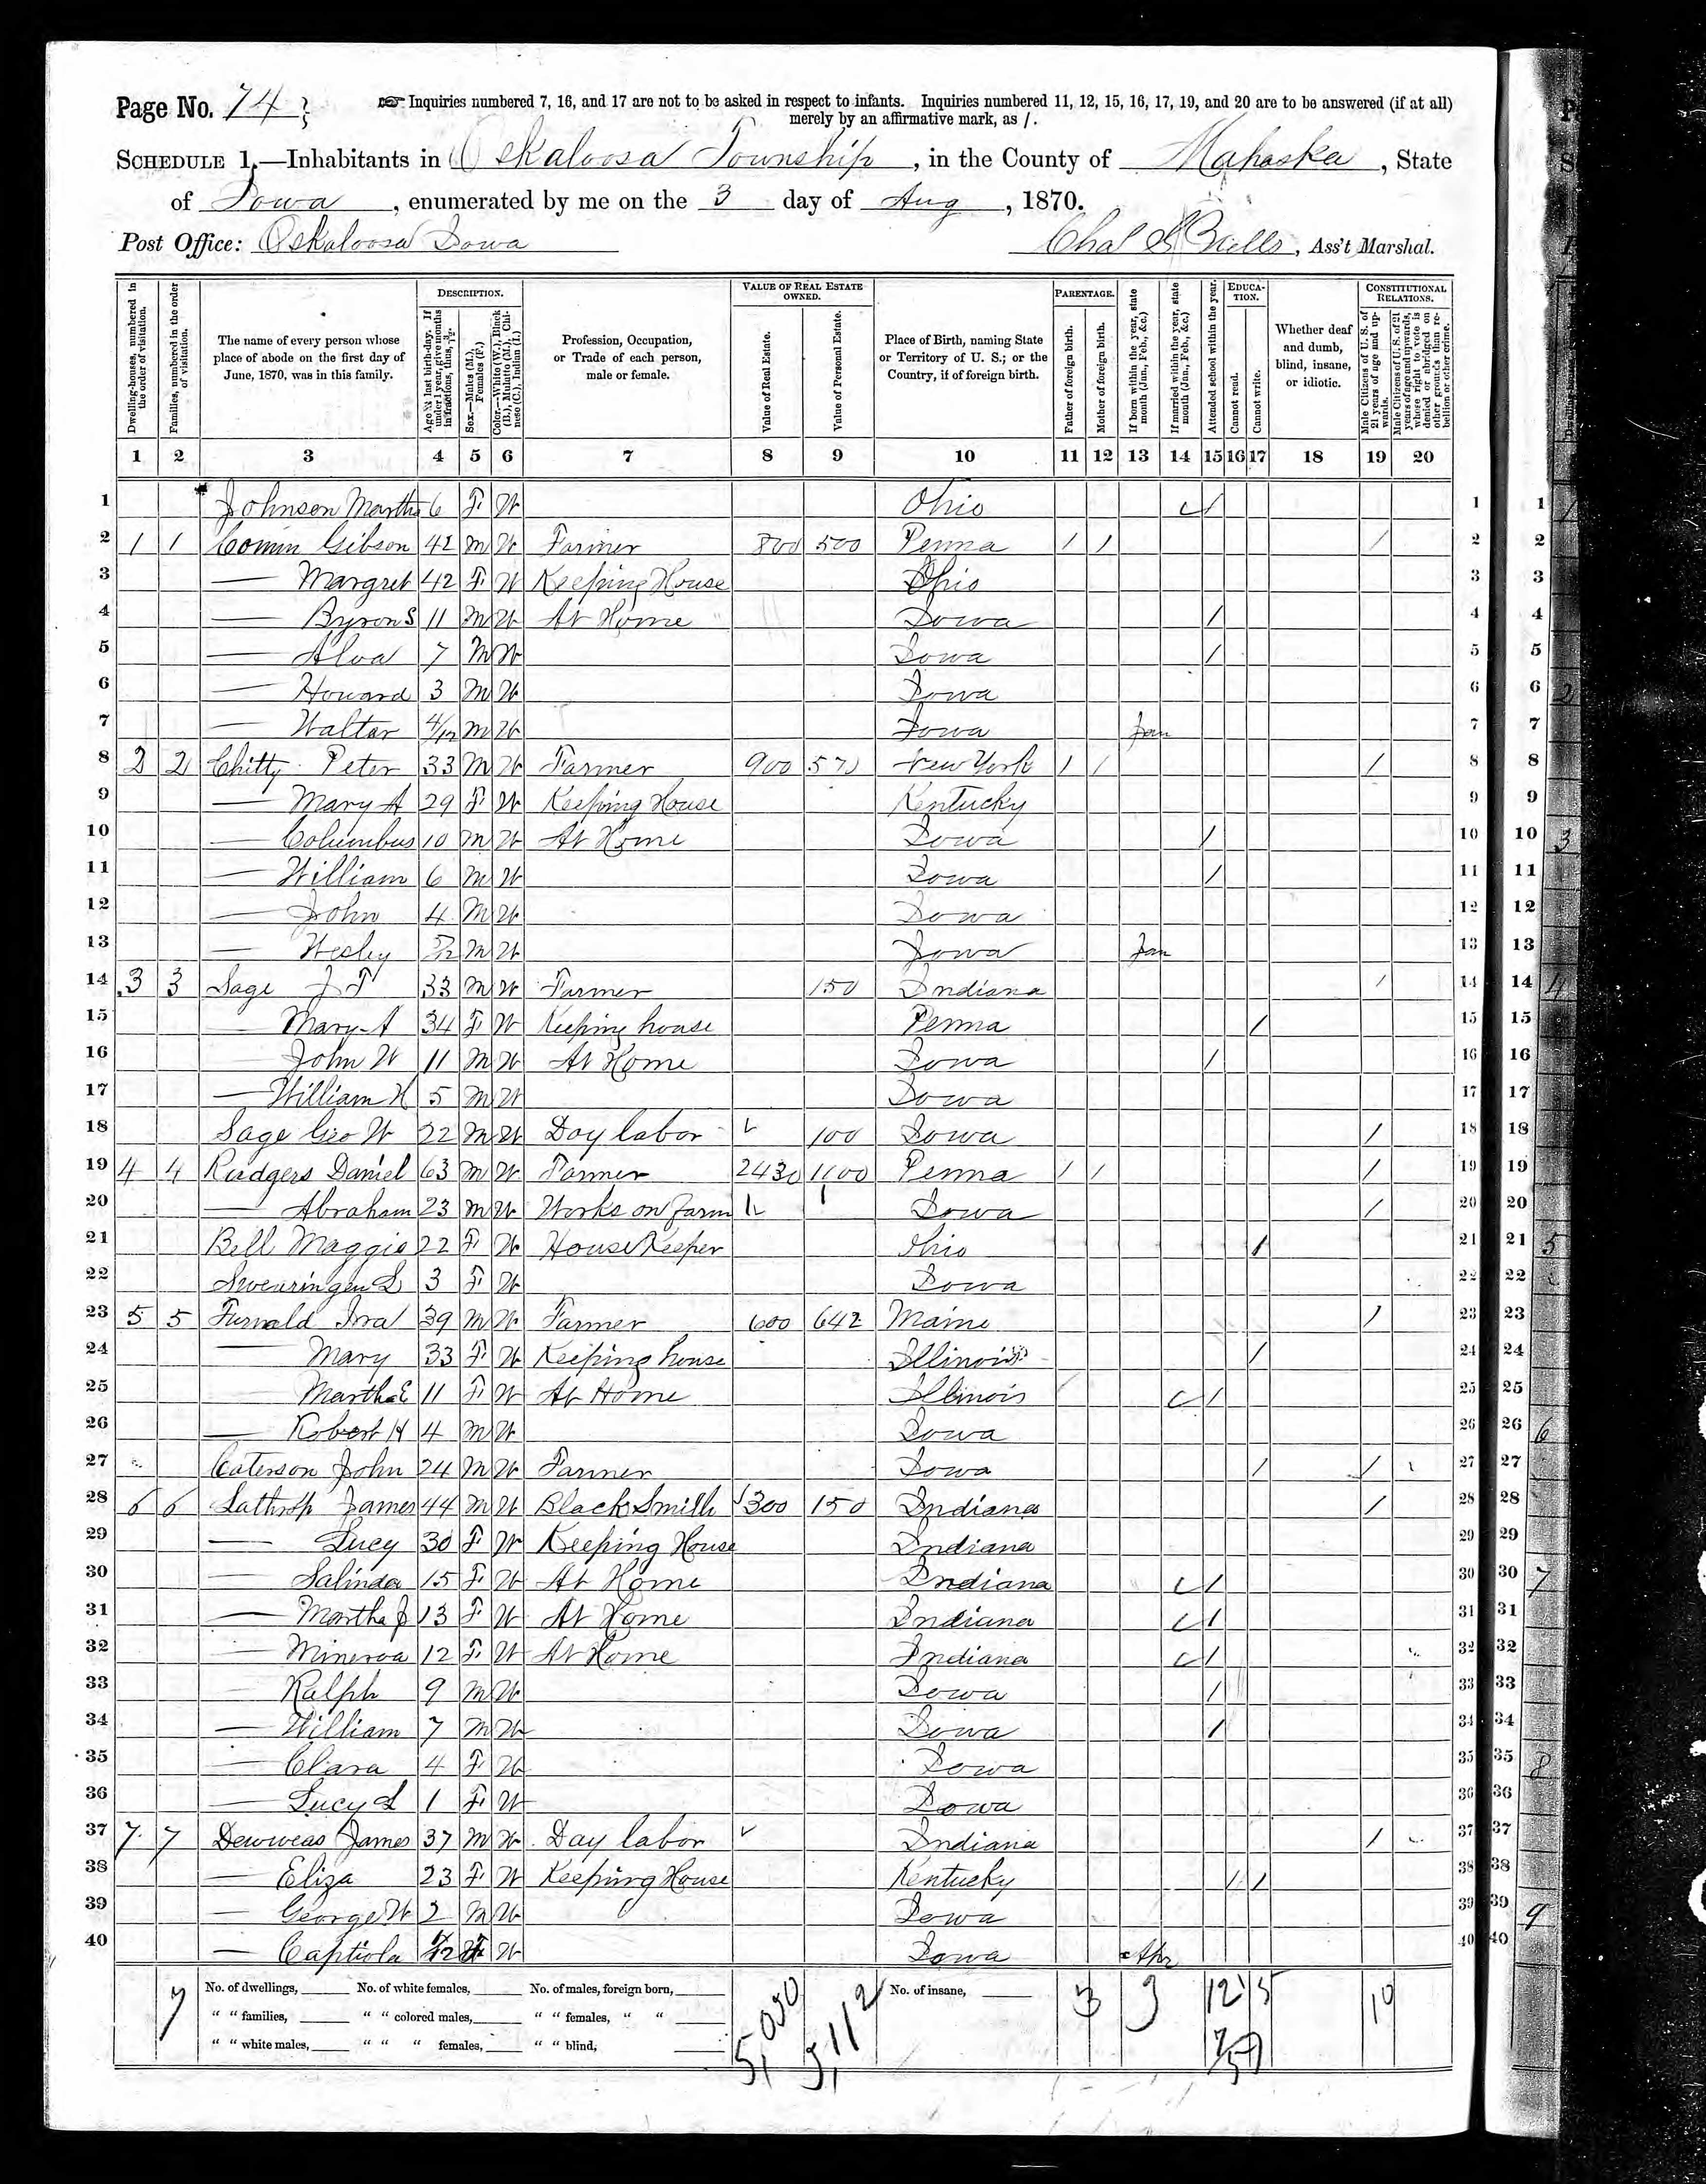 Page No. 74
Inquiries numbered 7, 16, and 17 are not to be asked in respect to infants. Inquiries numbered 11, 12, 15, 16, 17, 19, and 20 are to be answered (if at all)
merely by an affirmative mark, as /.
SCHEDULE 1.—Inhabitants in Oskaloosa Township, in the County of Mahaska, State
of Iowa, enumerated by me on the 3 day of Aug, 1870.
Post Office: Oskaloosa Iowa
, Ass't Marshal.
Dwelling-houses, numbered in the order of visitation.
Families, numbered in the order of visitation.
The name of every person whose place of abode on the first day of June, 1870, was in this family.
DESCRIPTION.
Age at last birth-day. If under 1 year, give months in fractions, thus, 3/12.
Sex.—Males (M.), Females (F.)
Color.—White (W.), Black (B.), Mulatto (M.), Chinese (C.), Indian (I.)
Profession, Occupation, or Trade of each person, male or female.
VALUE OF REAL ESTATE OWNED.
Value of Real Estate.
Value of Personal Estate.
Place of Birth, naming State or Territory of U. S.; or the Country, if of foreign birth.
PARENTAGE.
Father of foreign birth.
Mother of foreign birth.
If born within the year, state month (Jan., Feb., &c.)
If married within the year, state month (Jan., Feb., &c.)
Attended school within the year.
EDUCATION.
Cannot read.
Cannot write.
Whether deaf and dumb, blind, insane, or idiotic.
CONSTITUTIONAL RELATIONS.
Male Citizens of U. S. of 21 years of age and upwards.
Male Citizens of U. S. of 21 years of age and upwards, whose right to vote is denied or abridged on other grounds than rebellion or other crime.
1 2 3 4 5 6 7 8 9 10 11 12 13 14 15 16 17 18 19 20
1 Johnson Martha 6 F W Ohio / 1
2 1 1 Comin Gibson 42 M W Farmer 800 500 Penna / / / 2
3 — Margret 42 F W Keeping House Ohio 3
4 — Byron S 11 M W At Home Iowa / 4
5 — Alva 7 M W Iowa / 5
6 — Howard 3 M W Iowa 6
7 — Walter 4/12 M W Iowa Jan 7
8 2 2 Chitty Peter 33 M W Farmer 900 570 New York / / / 8
9 — Mary A 29 F W Keeping House Kentucky 9
10 — Columbus 10 M W At Home Iowa / 10
11 — William 6 M W Iowa / 11
12 — John 4 M W Iowa 12
13 — Wesley 5/12 M W Iowa Jan 13
14 3 3 Sage J T 33 M W Farmer 150 Indiana / 14
15 — Mary A 34 F W Keeping house Penna / 15
16 — John W 11 M W At Home Iowa / 16
17 — William H 5 M W Iowa 17
18 Sage Geo W 22 M W Day labor 100 Iowa / 18
19 4 4 Rudgers Daniel 63 M W Farmer 2430 1100 Penna / / / 19
20 — Abraham 23 M W Works on farm Iowa / 20
21 Bell Maggie 22 F W House Keeper Ohio / 21
22 Swearingen L 3 F W Iowa 22
23 5 5 Furnald Ira 39 M W Farmer 600 642 Maine / 23
24 — Mary 33 F W Keeping house Illinois / 24
25 — Martha E 11 F W At Home Illinois / 25
26 — Robert H 4 M W Iowa 26
27 Caterson John 24 M W Farmer Iowa / / 27
28 6 6 Lathrop James 44 M W Black Smith 300 150 Indiana / 28
29 — Lucy 30 F W Keeping House Indiana 29
30 — Salinda 15 F W At Home Indiana / 30
31 — Martha J 13 F W At Home Indiana / 31
32 — Minerva 12 F W At Home Indiana / 32
33 — Ralph 9 M W Iowa / 33
34 — William 7 M W Iowa / 34
35 — Clara 4 F W Iowa 35
36 — Lucy L 1 F W Iowa 36
37 7 7 Dewweas James 37 M W Day labor Indiana / 37
38 — Eliza 23 F W Keeping House Kentucky / / 38
39 — George W 2 M W Iowa 39
40 — Captiola F W Iowa Apr 40
No. of dwellings, No. of white females, No. of males, foreign born, No. of insane,
" " families, " " colored males, " " females, " "
" " white males, " " " females, " " blind,
7 5,030 3,112 3 3 12 5 10